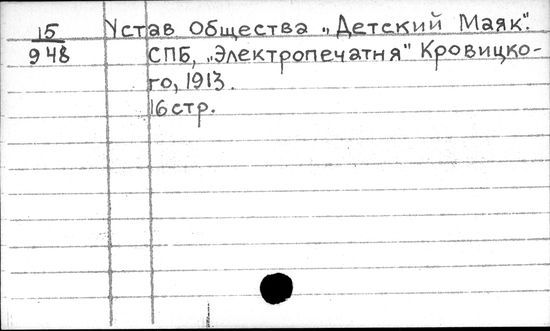 15
948
Устав Общества „Детский Маяк".
СПБ, „Электропечатня" Кровицко-
го, 1913.
16 стр.